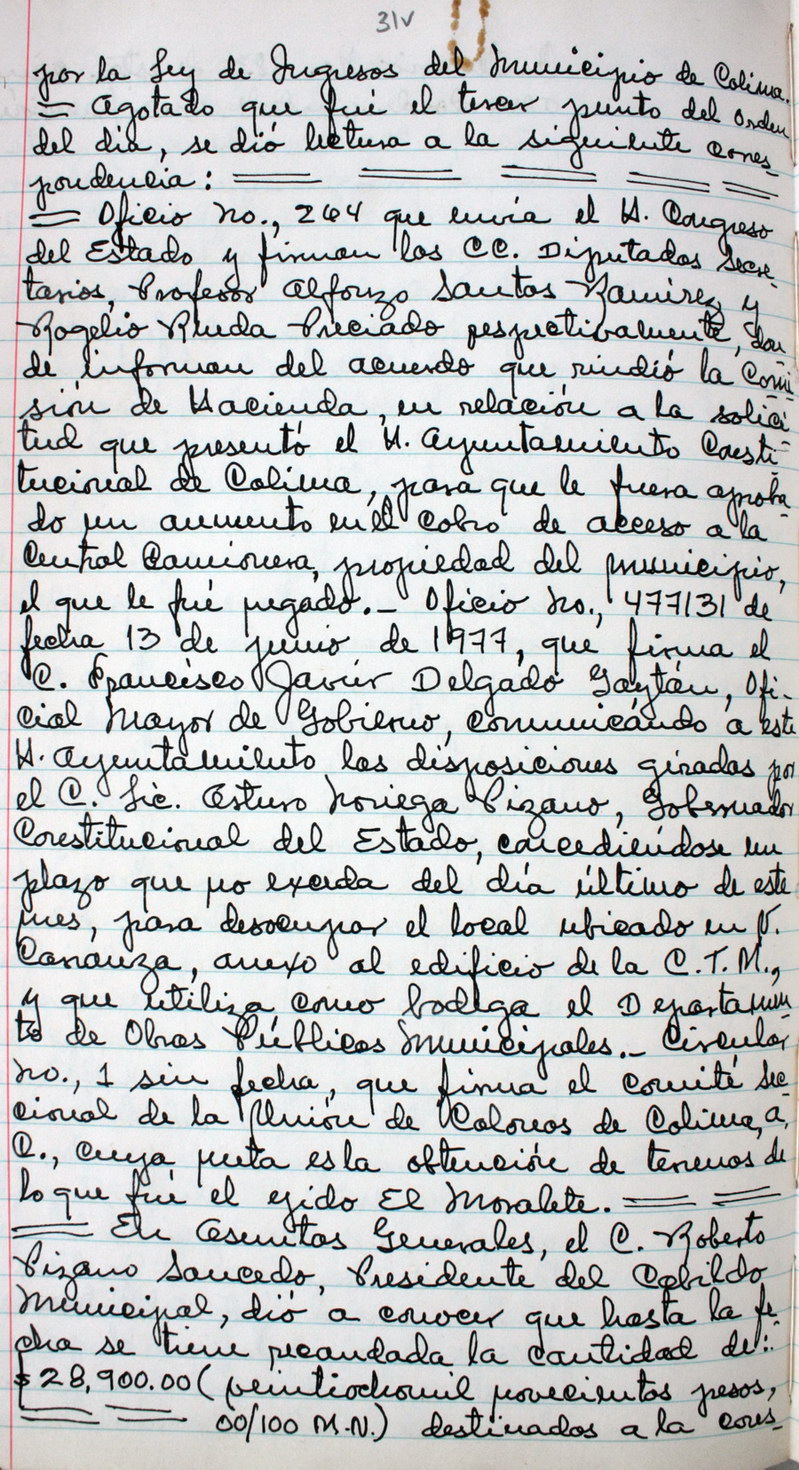 31v
por la Ley de Ingresos del Municipio de Colima.
= Agotado que fué el tercer punto del Orden
del día, se dió lectura a la siguiente corres-
pondencia: = = = = =
= Oficio No., 264 que envía el H. Congreso
del Estado y firman los CC. Diputados Secre-
tarios, Profesor Alfonzo Santos Ramírez y
Rogelio Rueda Preciado respectivamente, don
de informan del acuerdo que rindió la Comi-
sión de Hacienda, en relación a la solici-
tud que presentó el H. Ayuntamiento Consti-
tucional de Colima, para que le fuera aproba-
do un aumento en el cobro de acceso a la
Central Camionera, propiedad del municipio,
el que le fué negado.- Oficio No., 477131 de
fecha 13 de junio de 1977, que firma el
C. Francisco Javier Delgado Gaytán, Ofi-
cial Mayor de Gobierno, comunicándo a este
H. Ayuntamiento las disposiciones giradas por
el C. Lic. Arturo Noriega Pizano, Gobernador
Constitucional del Estado, concediéndose un
plazo que no exceda del día último de este
mes, para desocupar el local ubicado en V.
Carranza, anexo al edificio de la C.T.M.,
y que utiliza como bodega el Departamen-
to de Obras Públicas Municipales.- Circular
No., 1 sin fecha, que firma el comité Sec-
cional de la Unión de Colonos de Colima, A,
C., cuya meta es la obtención de terrenos de
lo que fué el ejido El Moralete. = =
= En Asuntos Generales, el C. Roberto
Pizano Saucedo, Presidente del Cabildo
Municipal, dió a conocer que hasta la fe-
cha se tiene recaudada la cantidad de:
$28,900.00 (veintiochomil novecientos pesos,
= = 00/100 M.N.) destinados a la cons-